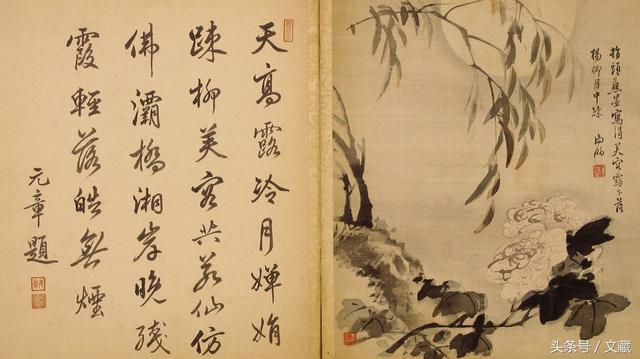 天高露冷月嬋娟
踈柳芙容共若仙仿
佛灞橋湘岸晚殘
霞輕落皓無煙
元章題
指頭蘸墨寫得芙容露下落
楊柳月中踈
头条号 / 文藏